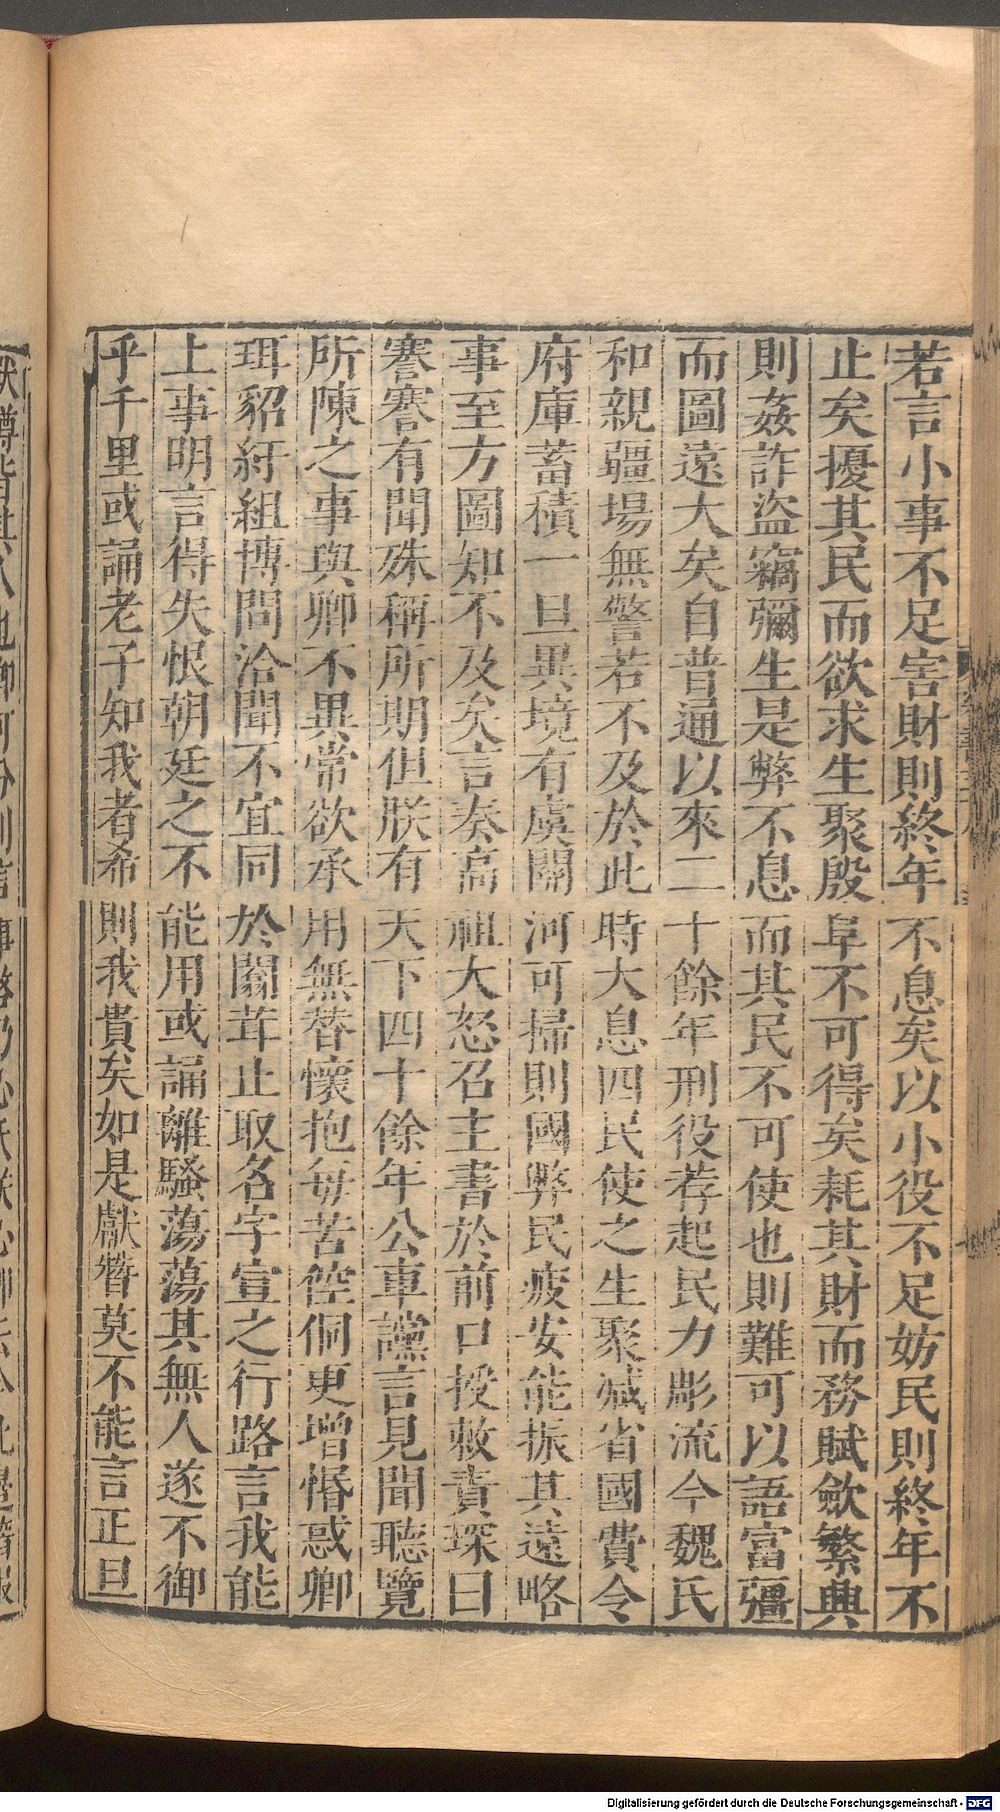 若言小事不足害財則終年不息矣以小役不足妨民則終年不
止矣擾其民而欲求生聚殷阜不可得矣耗其財而務賦斂繁興
則姦詐盜竊彌生是弊不息而其民不可使也則難可以語富疆
而圖遠大矣自普通以來二十餘年刑役荐起民力彫流今魏氏
和親疆場無警若不及於此時大息四民使之生聚減省國費令
府庫蓄積一旦異境有虞關河可掃則國弊民疲安能振其遠略
事至方圖知不及矣言奏高祖大怒召主書於前口授敕責琛曰
謇謇有聞殊稱所期但朕有天下四十餘年公車讜言見聞聽覽
所陳之事與卿不異常欲承用無替懷抱每苦倥侗更增惛惑卿
珥貂紆組博問洽聞不宜同於闒茸止取名字宣之行路言我能
上事明言得失恨朝廷之不能用或誦離騷蕩蕩其無人遂不御
乎千里或誦老子知我者希則我貴矣如是獻替莫不能言正旦
Digitalisierung gefördert durch die Deutsche Forschungsgemeinschaft - DFG